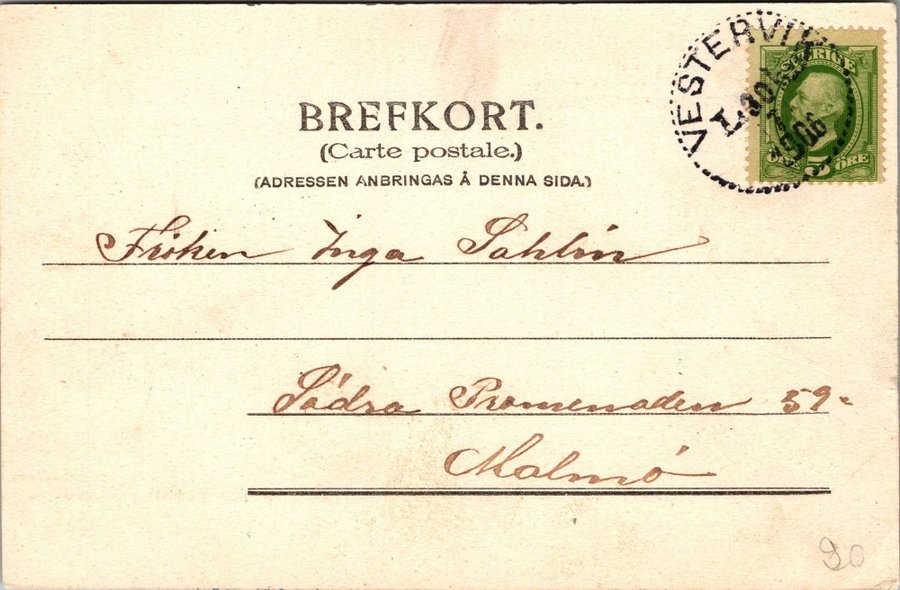 VESTERVIK
SVERIGE
1906
5 ÖRE
BREFKORT.
(Carte postale.)
(ADRESSEN ANBRINGAS Å DENNA SIDA.)
Fröken Inga Sahlin
Södra Promenaden 59-
Malmö
90